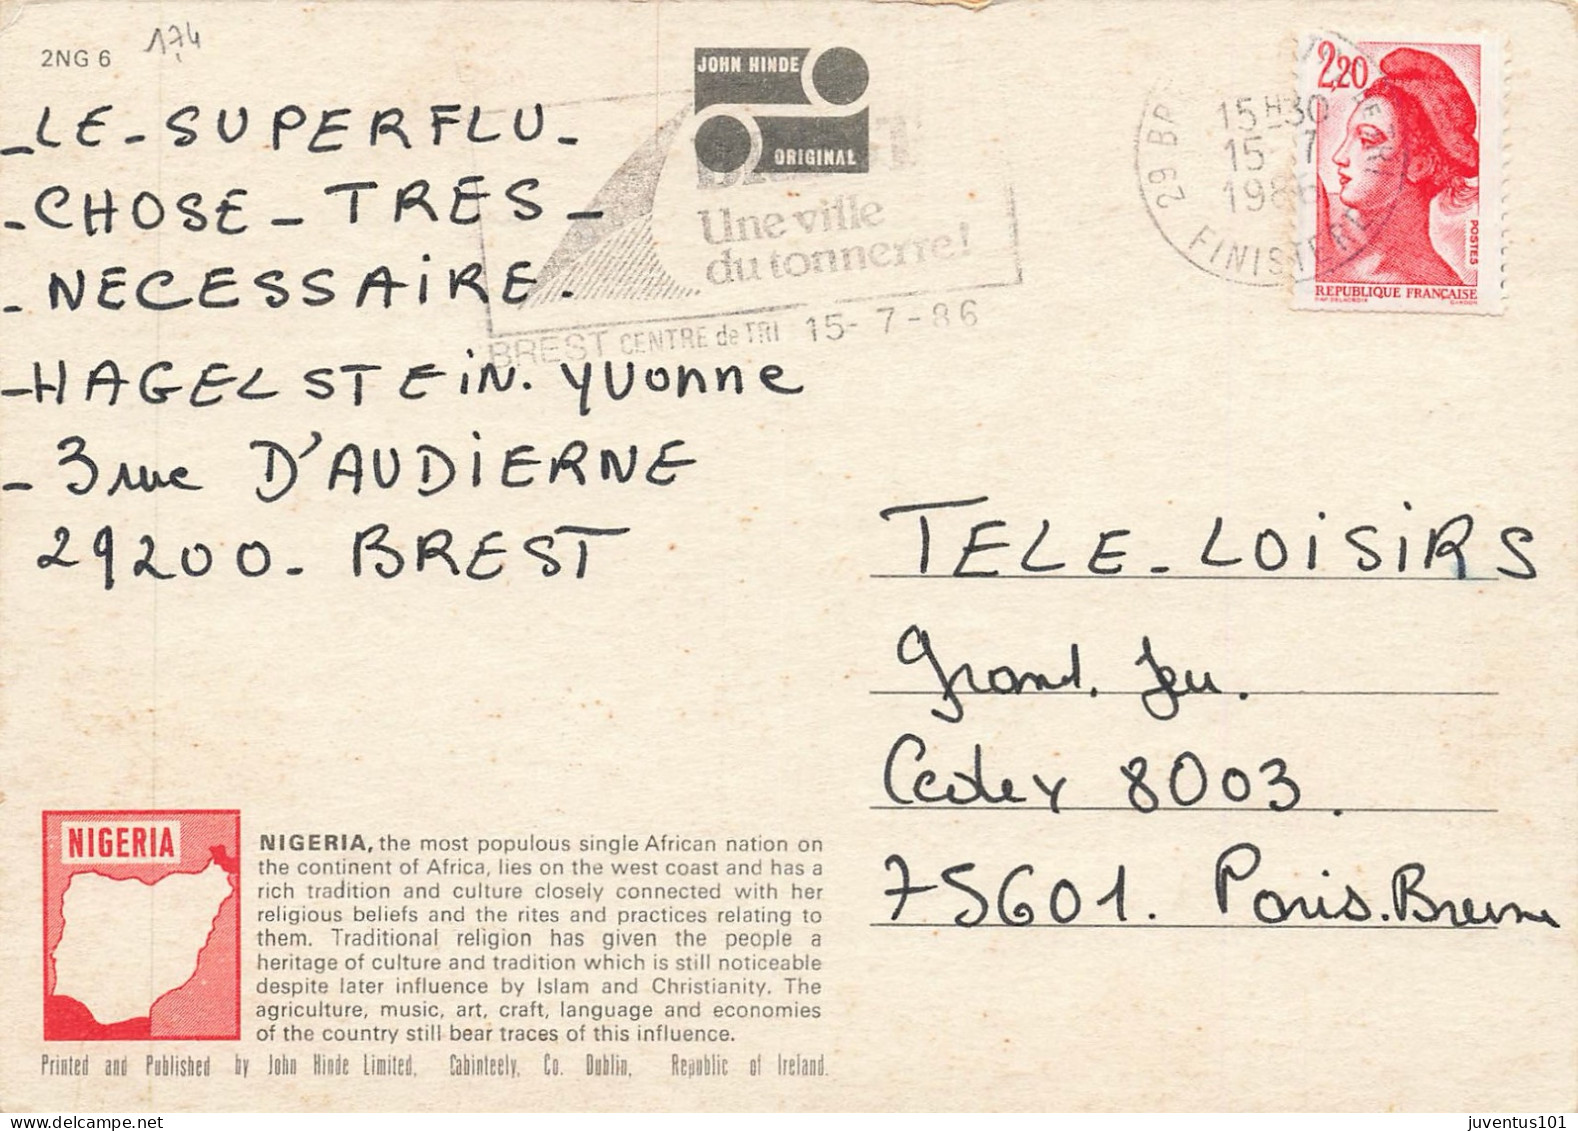 2NG 6
17,4
JOHN HINDE
ORIGINAL
- LE - SUPERFLU -
- CHOSE - TRES -
- NECESSAIRE.
- HAGELSTEIN. YVONNE
- 3 rue D'AUDIERNE
29200 - BREST
Une ville
du tonnerre!
BREST CENTRE de TRI 15- 7 - 86
15H30
15- 7
1986
FINISTERE
2,20
POSTES
REPUBLIQUE FRANÇAISE
TELE - LOISIRS
Grand. Jeu.
Cedex 8003.
75601. Paris.Brune
NIGERIA
NIGERIA, the most populous single African nation on
the continent of Africa, lies on the west coast and has a
rich tradition and culture closely connected with her
religious beliefs and the rites and practices relating to
them. Traditional religion has given the people a
heritage of culture and tradition which is still noticeable
despite later influence by Islam and Christianity. The
agriculture, music, art, craft, language and economies
of the country still bear traces of this influence.
Printed and Published by John Hinde Limited, Cabinteely, Co. Dublin, Republic of Ireland.
juventus101